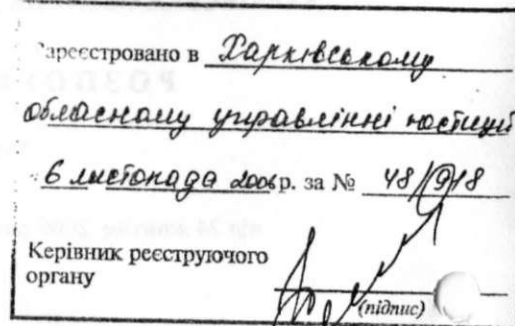 Зареєстровано в Харківському
обласному управлінні юстиції
6 листопада 2006 р. за № 48/918
Керівник реєструючого
органу
(підпис)